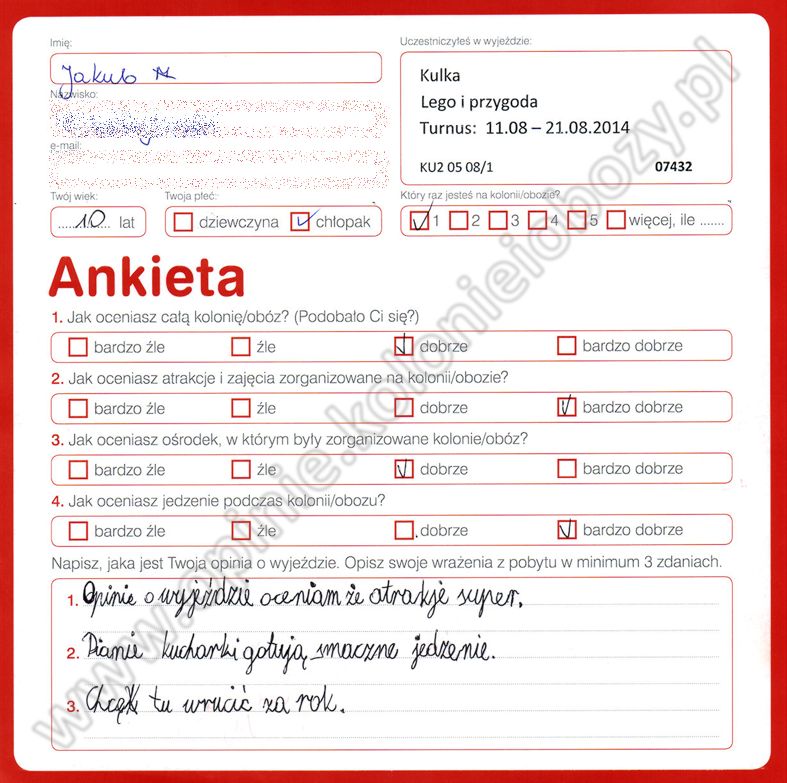 Imię:
Jakub M
Nazwisko:
e-mail:
Uczestniczyłeś w wyjeździe:
Kulka
Lego i przygoda
Turnus: 11.08 – 21.08.2014
KU2 05 08/1 07432
Twój wiek: Twoja płeć: Który raz jesteś na kolonii/obozie?
10 lat dziewczyna chłopak 1 2 3 4 5 więcej, ile .......
Ankieta
1. Jak oceniasz całą kolonię/obóz? (Podobało Ci się?)
bardzo źle źle dobrze bardzo dobrze
2. Jak oceniasz atrakcje i zajęcia zorganizowane na kolonii/obozie?
bardzo źle źle dobrze bardzo dobrze
3. Jak oceniasz ośrodek, w którym były zorganizowane kolonie/obóz?
bardzo źle źle dobrze bardzo dobrze
4. Jak oceniasz jedzenie podczas kolonii/obozu?
bardzo źle źle dobrze bardzo dobrze
Napisz, jaka jest Twoja opinia o wyjeździe. Opisz swoje wrażenia z pobytu w minimum 3 zdaniach.
1. Opinie o wyjeździe oceniam że atrakje super.
2. Pianie kucharki gotują smaczne jedzenie.
3. Chcę tu wrucić za rok.
www.opinie.kolonieiobozy.pl